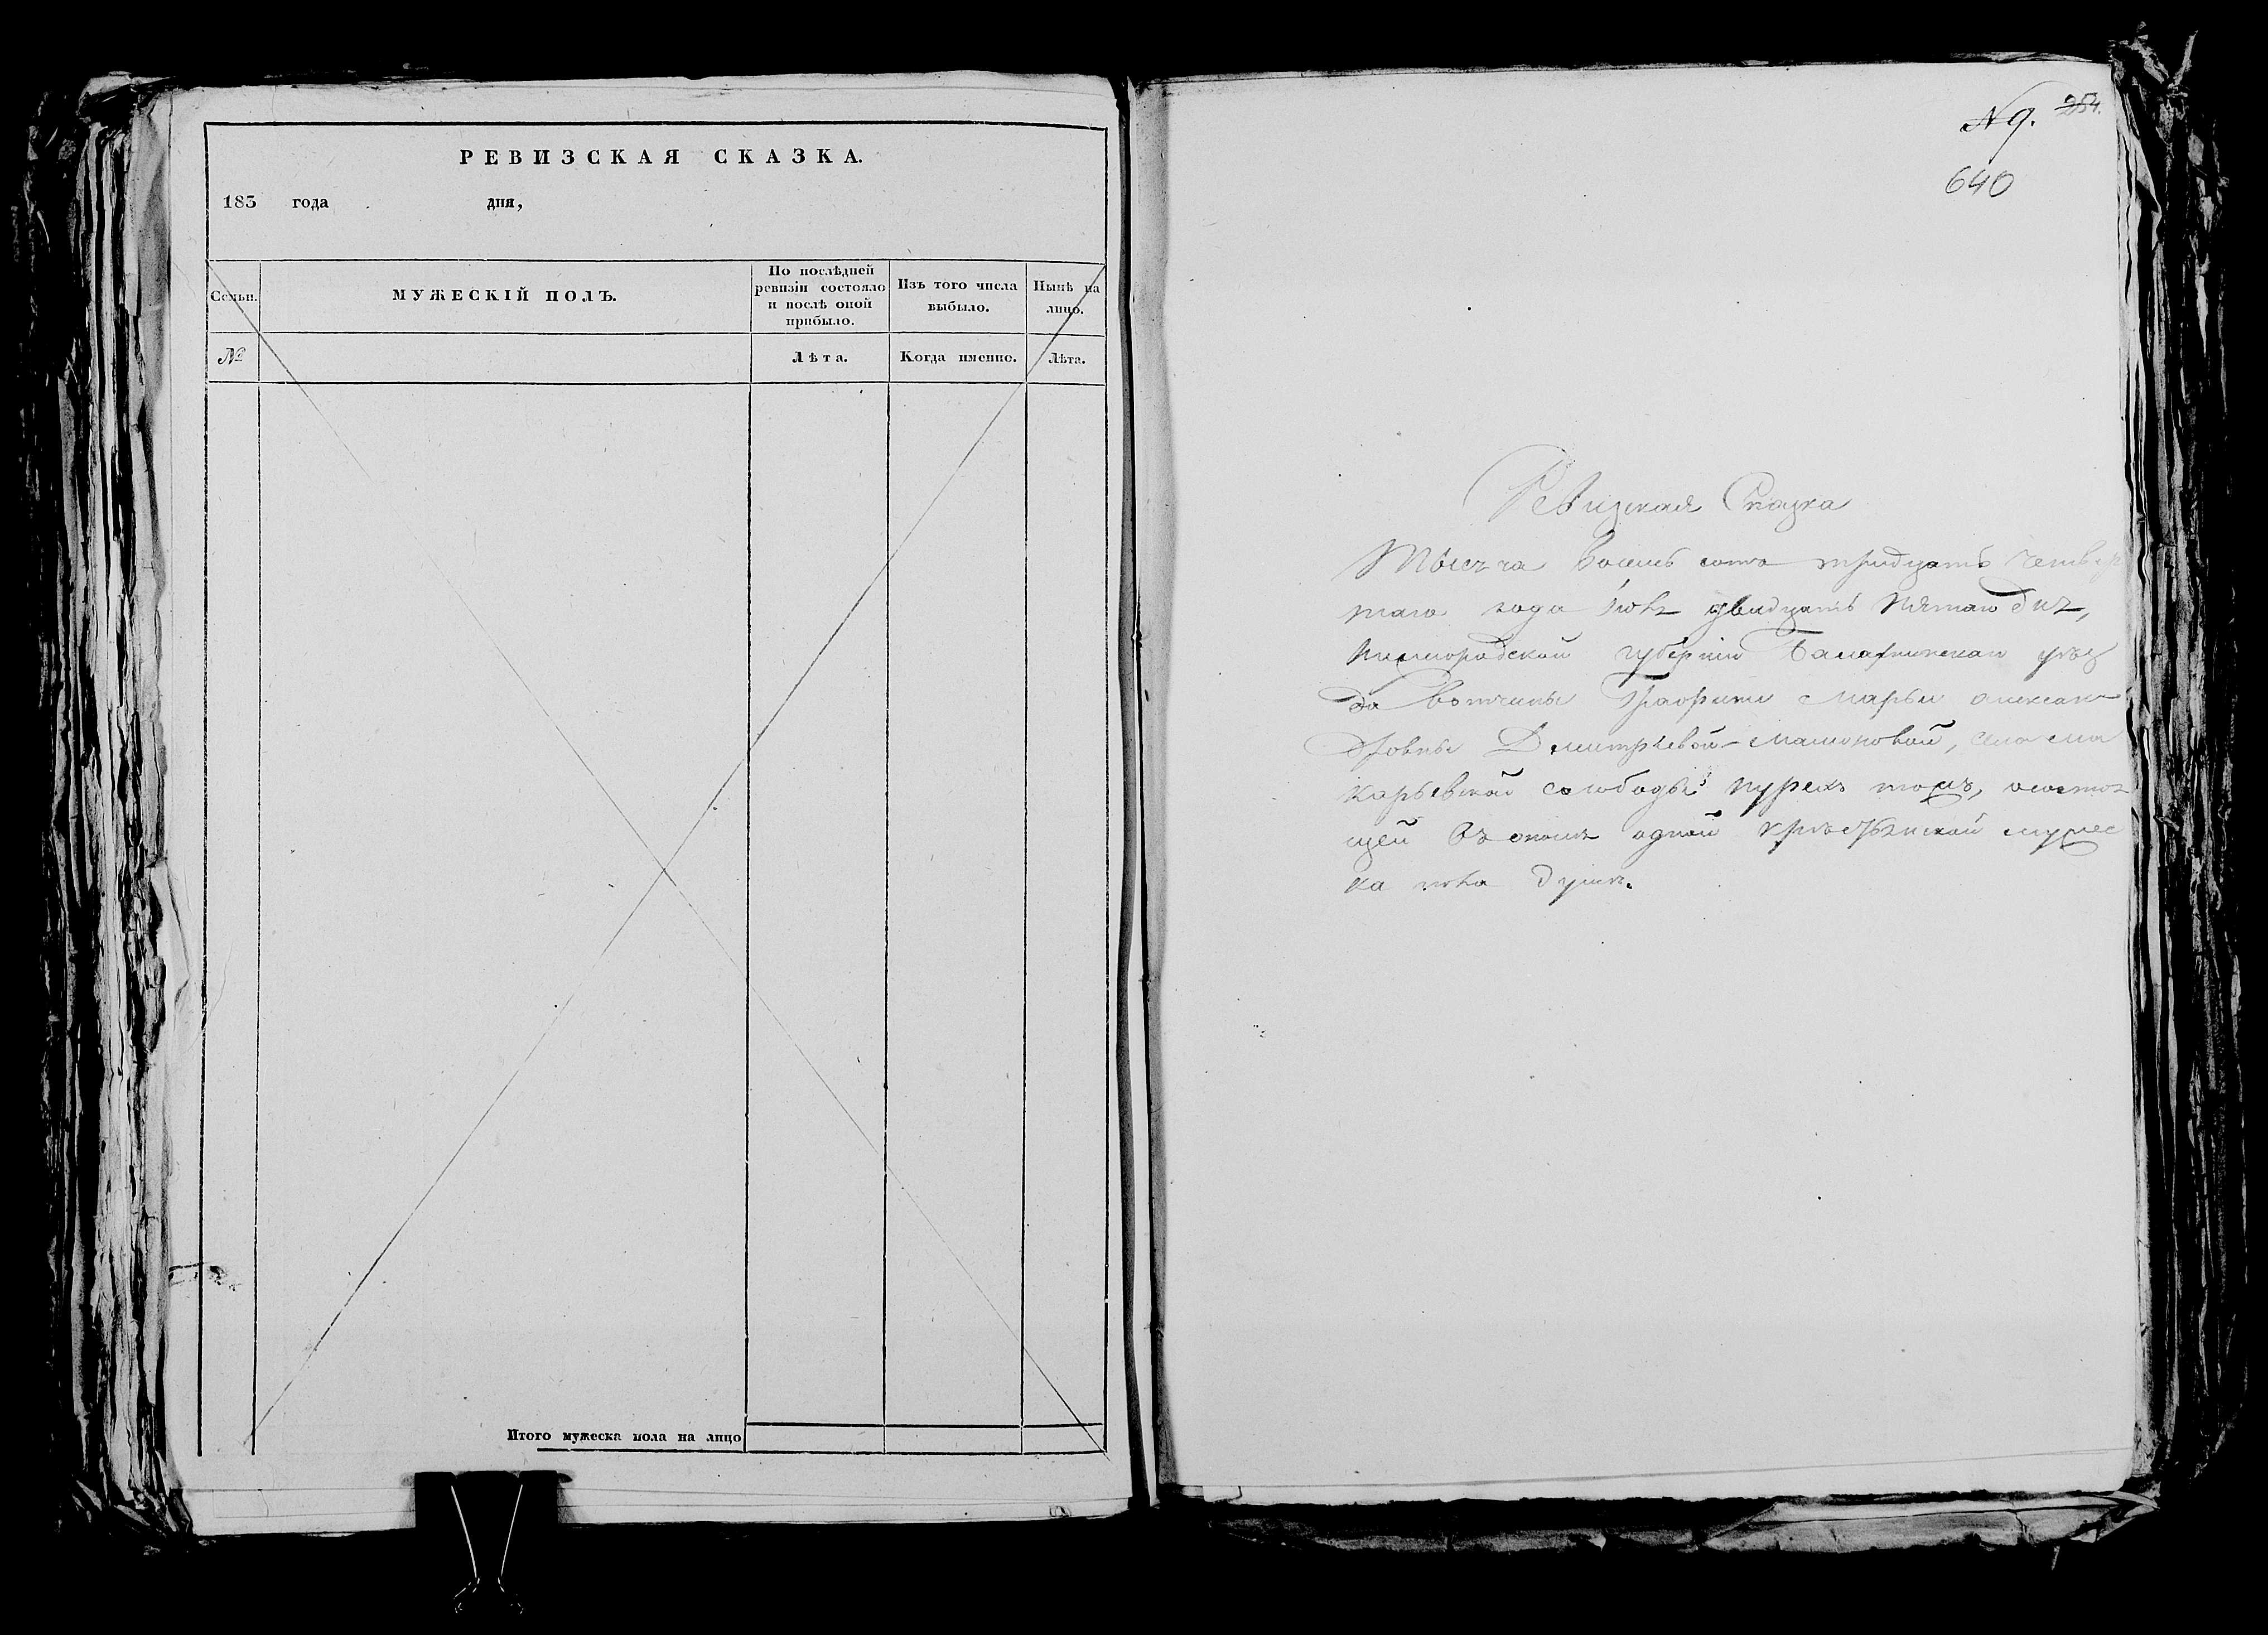 РЕВИЗСКАЯ СКАЗКА.
183 года дня,
Семьи.
МУЖЕСКІЙ ПОЛЪ.
По послѣдней
ревизіи состояло
и послѣ оной
прибыло.
Изъ того числа
выбыло.
Нынѣ на
лицо.
№
Лѣта.
Когда именно.
Лѣта.
Итого мужеска пола на лицо
N 9. 254.
640
Ревизская Сказка
Тысеча Восемь сотъ тридцать Четвер
таго года двидцать Пятаго дня,
Нижегородской губерніи Балахнинскаго уѣз
да Вотчины Графини Марьи Алексан
дровны Дмитріевой-Мамоновой, села Ма
карьевской слободы Пурехъ тожъ, о состоя
щей въ ономъ одной крестьянской мужес
ка пола душѣ.